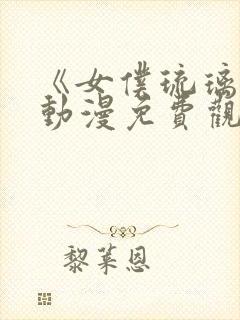 《女僕琉璃
動漫免費觀
黎萊恩